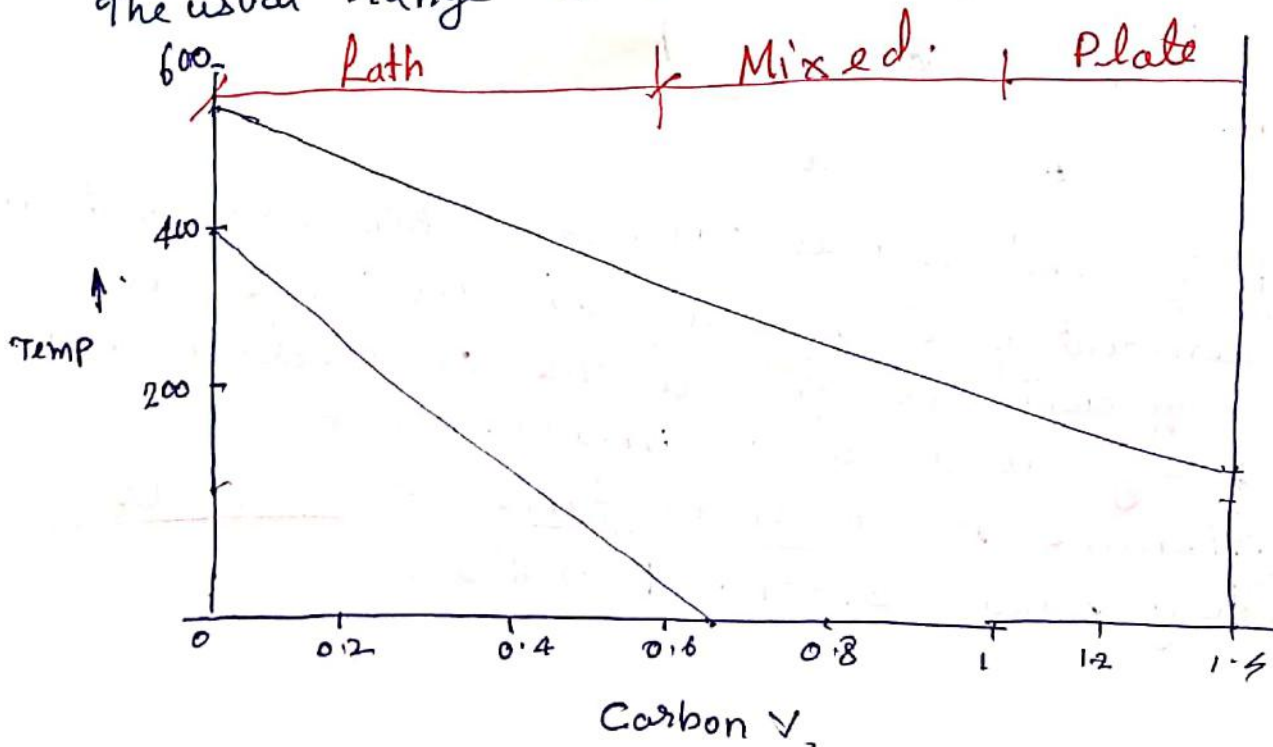 The usual
600
Lath Mixed. Plate
400
Temp
200
0 0.2 0.4 0.6 0.8 1 1.2
Carbon